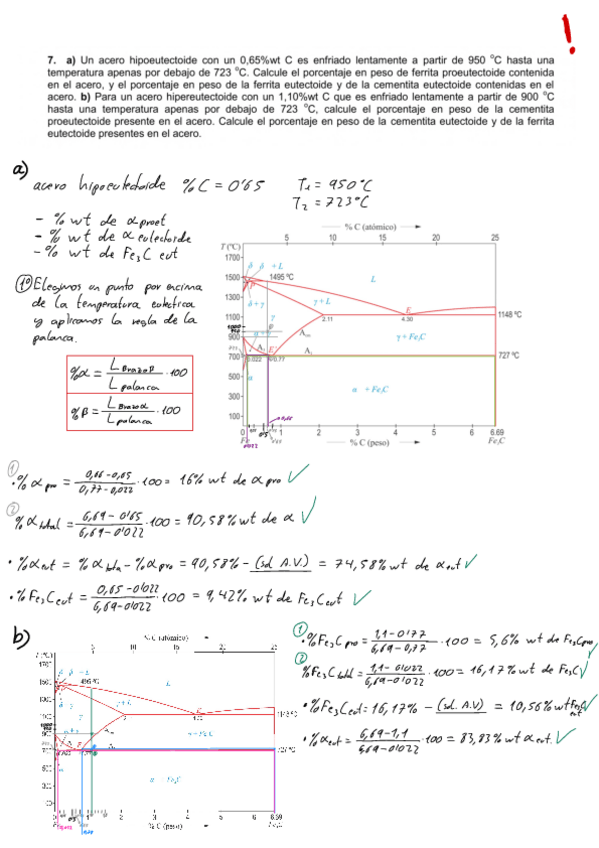 !
7. a) Un acero hipoeutectoide con un 0,65%wt C es enfriado lentamente a partir de 950 °C hasta una
temperatura apenas por debajo de 723 °C. Calcule el porcentaje en peso de ferrita proeutectoide contenida
en el acero, y el porcentaje en peso de la ferrita eutectoide y de la cementita eutectoide contenidas en el
acero. b) Para un acero hipereutectoide con un 1,10%wt C que es enfriado lentamente a partir de 900 °C
hasta una temperatura apenas por debajo de 723 °C, calcule el porcentaje en peso de la cementita
proeutectoide presente en el acero. Calcule el porcentaje en peso de la cementita eutectoide y de la ferrita
eutectoide presentes en el acero.
a)
acero hipoeutectoide %C = 0'65 T₁ = 950°C
T₂ = 723°C
- % wt de α proet
- % wt de α eutectoide
- % wt de Fe₃C eut
1º Elegimos un punto por encima
de la temperatura eutéctica
y aplicamos la regla de la
palanca.
%α = L Brazo β / L palanca · 100
%β = L Brazo α / L palanca · 100
% C (atómico)
5 10 15 20 25
T (°C)
1700
1500
1300
1100
900
700
500
300
100
δ δ + L
1495 °C
L
δ+γ
γ+L
2.11
4.30
1148 °C
γ
γ + Fe₃C
727 °C
0.022
0.77
α
α + Fe₃C
0 1 2 3 4 5 6 6.69
Fe % C (peso) Fe₃C
① · % α pro = 0,77-0,022 · 100 = 16% wt de α pro ✓
② % α total = 6,69 - 0'65 / 6,69 - 0'022 · 100 = 90,58% wt de α ✓
· % α eut = % α tota - % α pro = 90,58% - (sol A.V.) = 74,58% wt de α eut ✓
· % Fe₃C eut = 0,65 - 0'022 / 6,69 - 0'022 · 100 = 9,42% wt de Fe₃C eut ✓
b)
① · % Fe₃C pro = 1,1 - 0'77 / 6,69 - 0,77 · 100 = 5,6% wt de Fe₃C pro ✓
② % Fe₃C total = 1,1 - 0'022 / 6,69 - 0'022 · 100 = 16,17% wt de Fe₃C ✓
· % Fe₃C eut = 16,17% - (sol. A.V) = 10,56% wt Fe₃C eut ✓
· % α eut = 6,69 - 1,1 / 6,69 - 0'022 · 100 = 83,83% wt α eut. ✓
% C (peso)